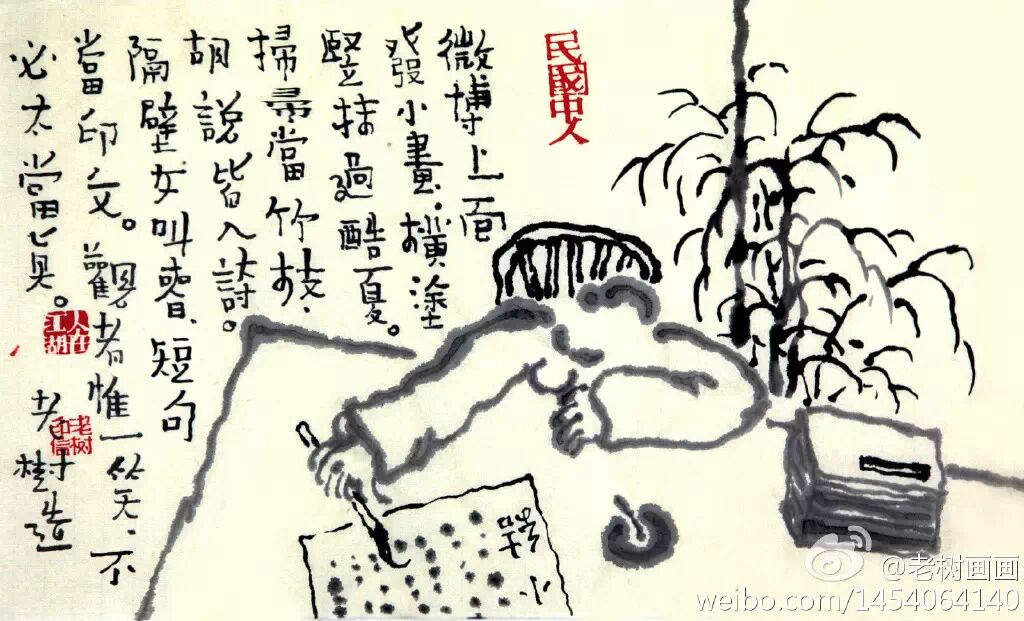 民國中人
微博上面
發小畫、橫塗
竪抹過酷夏。
掃帚當竹枝、
胡說皆入詩。
隔壁女叫春、短句
當印文。觀者惟一笑、不
必太當真。
人在江湖
老樹造
老树
@老树画画
weibo.com/1454064140